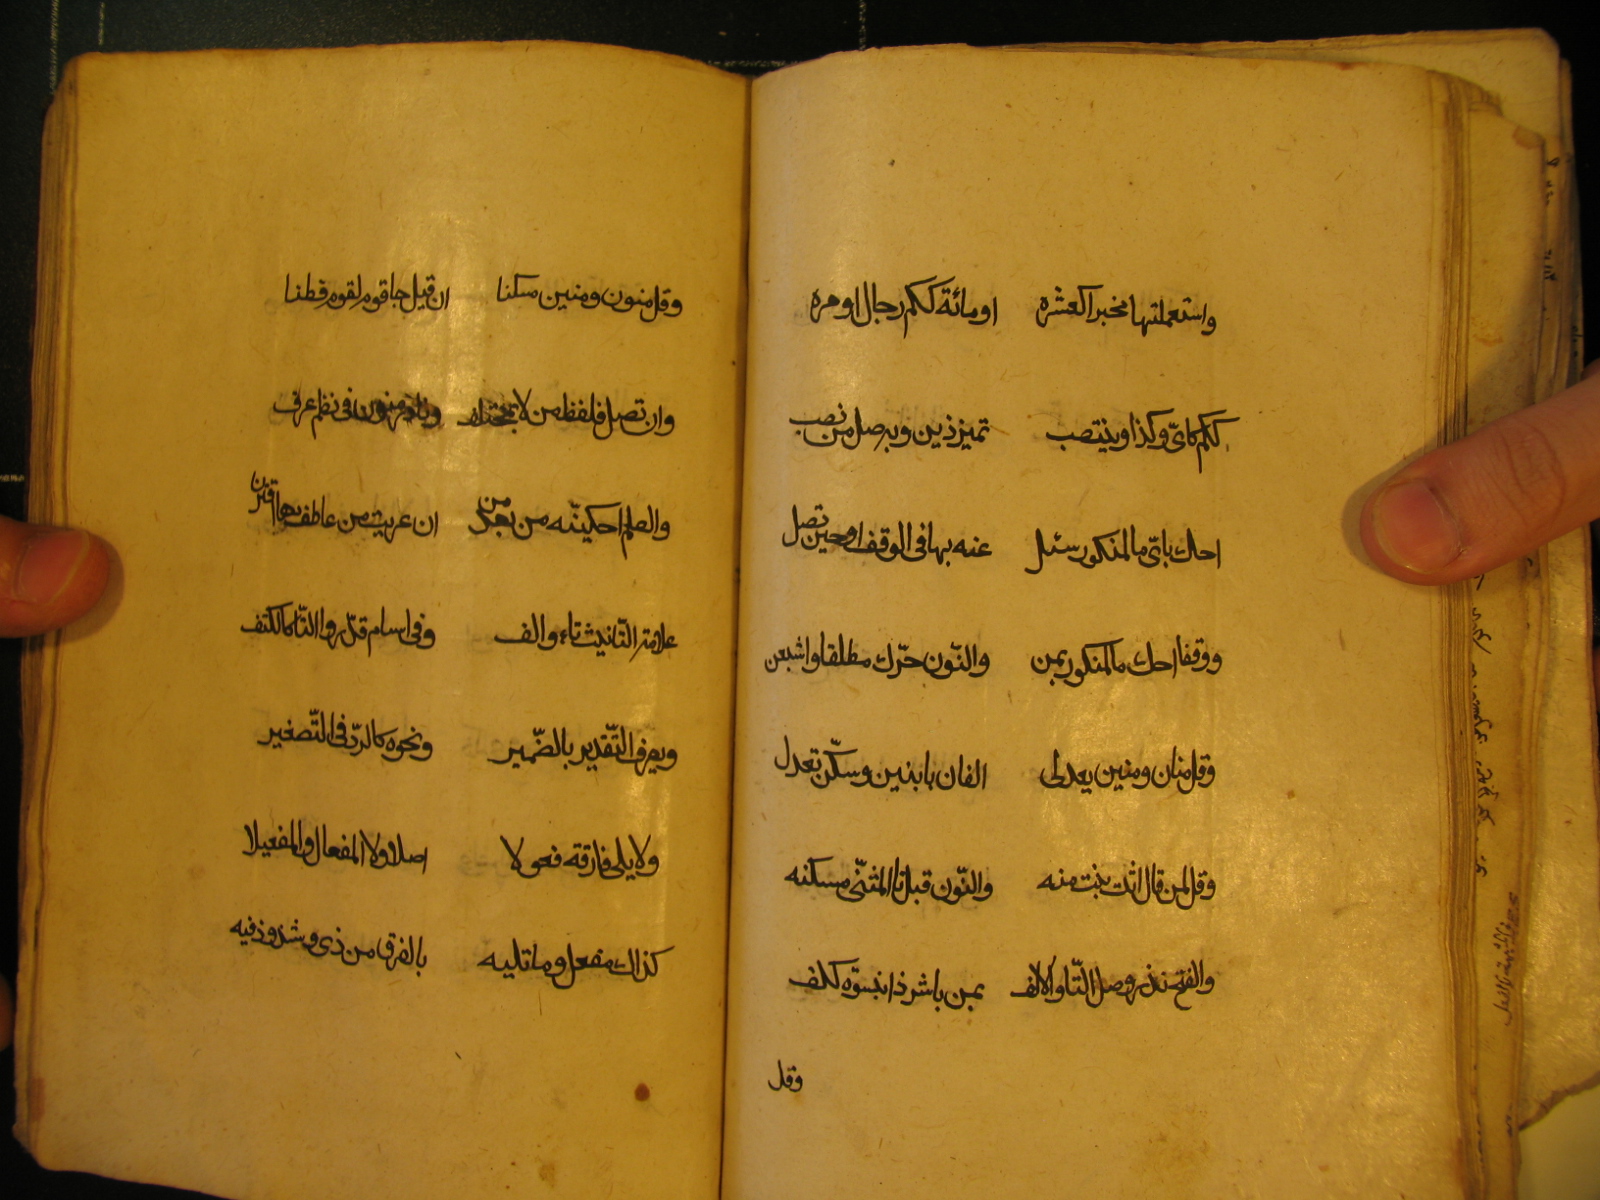 واستعملتها مخبرا كعشره اومائة ككم رجال اومره
ككم كايّ وكذا وينتصب تميز ذين وبه صل من تصب
احك بايّ ما لمنكور سئل عنه بها فى الوقف اوحين تصل
ووقفا احك ما لمنكور بمن والنّون حرّك مطلقا واشبعن
وقل منان ومنين بعد لى الفان بابنين وسكّن تعدل
وقل لمن قال اتت بنت منه والنّون قبل تا المثنّى مسكنه
والفتح نذر وصل التّا والالف بمن باثر ذا بنسوة كلف
وقل
وقل منون ومنين مسكنا ان قيل جا قوم لقوم فطنا
وان تصل فلفظ من لا يختلف ونادر منون فى نظم عرف
والعلم احكينّه من بعد من ان عريت من عاطف بها اقترن
علامة التّانيث تاء والف وفى اسام قدّروا التّا كالكتف
ويعرف التّقدير بالضّمير ونحوه كالردّ فى التّصغير
ولا يلى فارقة فعولا اصلا ولا المفعال والمفعيلا
كذاك مفعل وما تليه بالفرق من ذى وشذوذ فيه